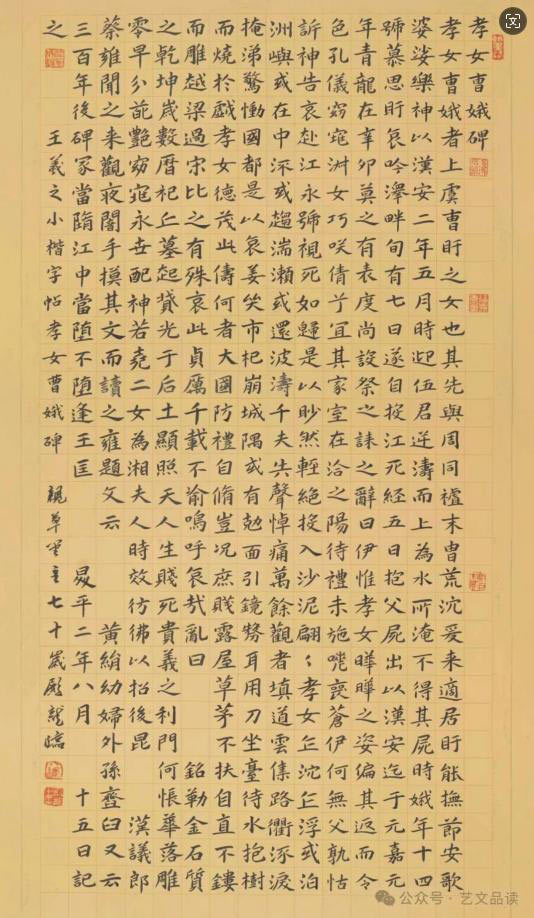 孝女曹娥碑
孝女曹娥者上虞曹盱之女也其先與周同禭末冑荒沉爰来適居盱能撫節安歌
婆娑樂神以漢安二年五月時迎伍君逆濤而上為水所淹不得其屍時娥年十四
號慕思盱哀吟澤畔旬有七日遂自投江死経五日抱父屍出以漢安迄于元嘉元
年青龍在辛卯莫之有表度尚設祭之誄之辭曰伊惟孝女曄曄之姿編其返而令
色孔儀窈窕淑女巧咲倩兮宜其家室在洽之陽待禮未施嗟喪蒼伊何無父孰怙
訴神告哀赴江永號視死如歸是以眇然輕絕投入沙泥翩〻孝女乍沉乍浮或泊
洲嶼或在中流或趨湍瀬或還波濤千夫失聲悼痛萬餘觀者填道雲集路衢泝淚
掩涕驚慟國都是以哀姜哭市杞崩城隅或有尅面引鏡剺耳用刀坐臺待水抱樹
而燒於戲孝女德茂此儔何者大國防禮自脩豈況庶賤露屋草茅不扶自直不鏤
而雕越梁過宋比之有殊哀此貞厲千載不渝嗚呼哀哉亂曰 銘勒金石質
之乾坤歲數曆祀丘墓起墳光于后土顯照天人生賤死貴義之利門何悵華落雕
零早分葩艷窈窕永世配神若堯二女為湘夫人時效彷彿以招後昆 漢議郎
蔡雍聞之来觀夜闇手摸其文而讀之雍題文云 黃絹幼婦外孫齏臼又云
三百年後碑冢當隳江中當堕不堕逢王匡 昇平二年八月 十五日記
之 王羲之小楷字帖孝女曹娥碑 草堂主七十歲龍臨
公众号·艺文品读